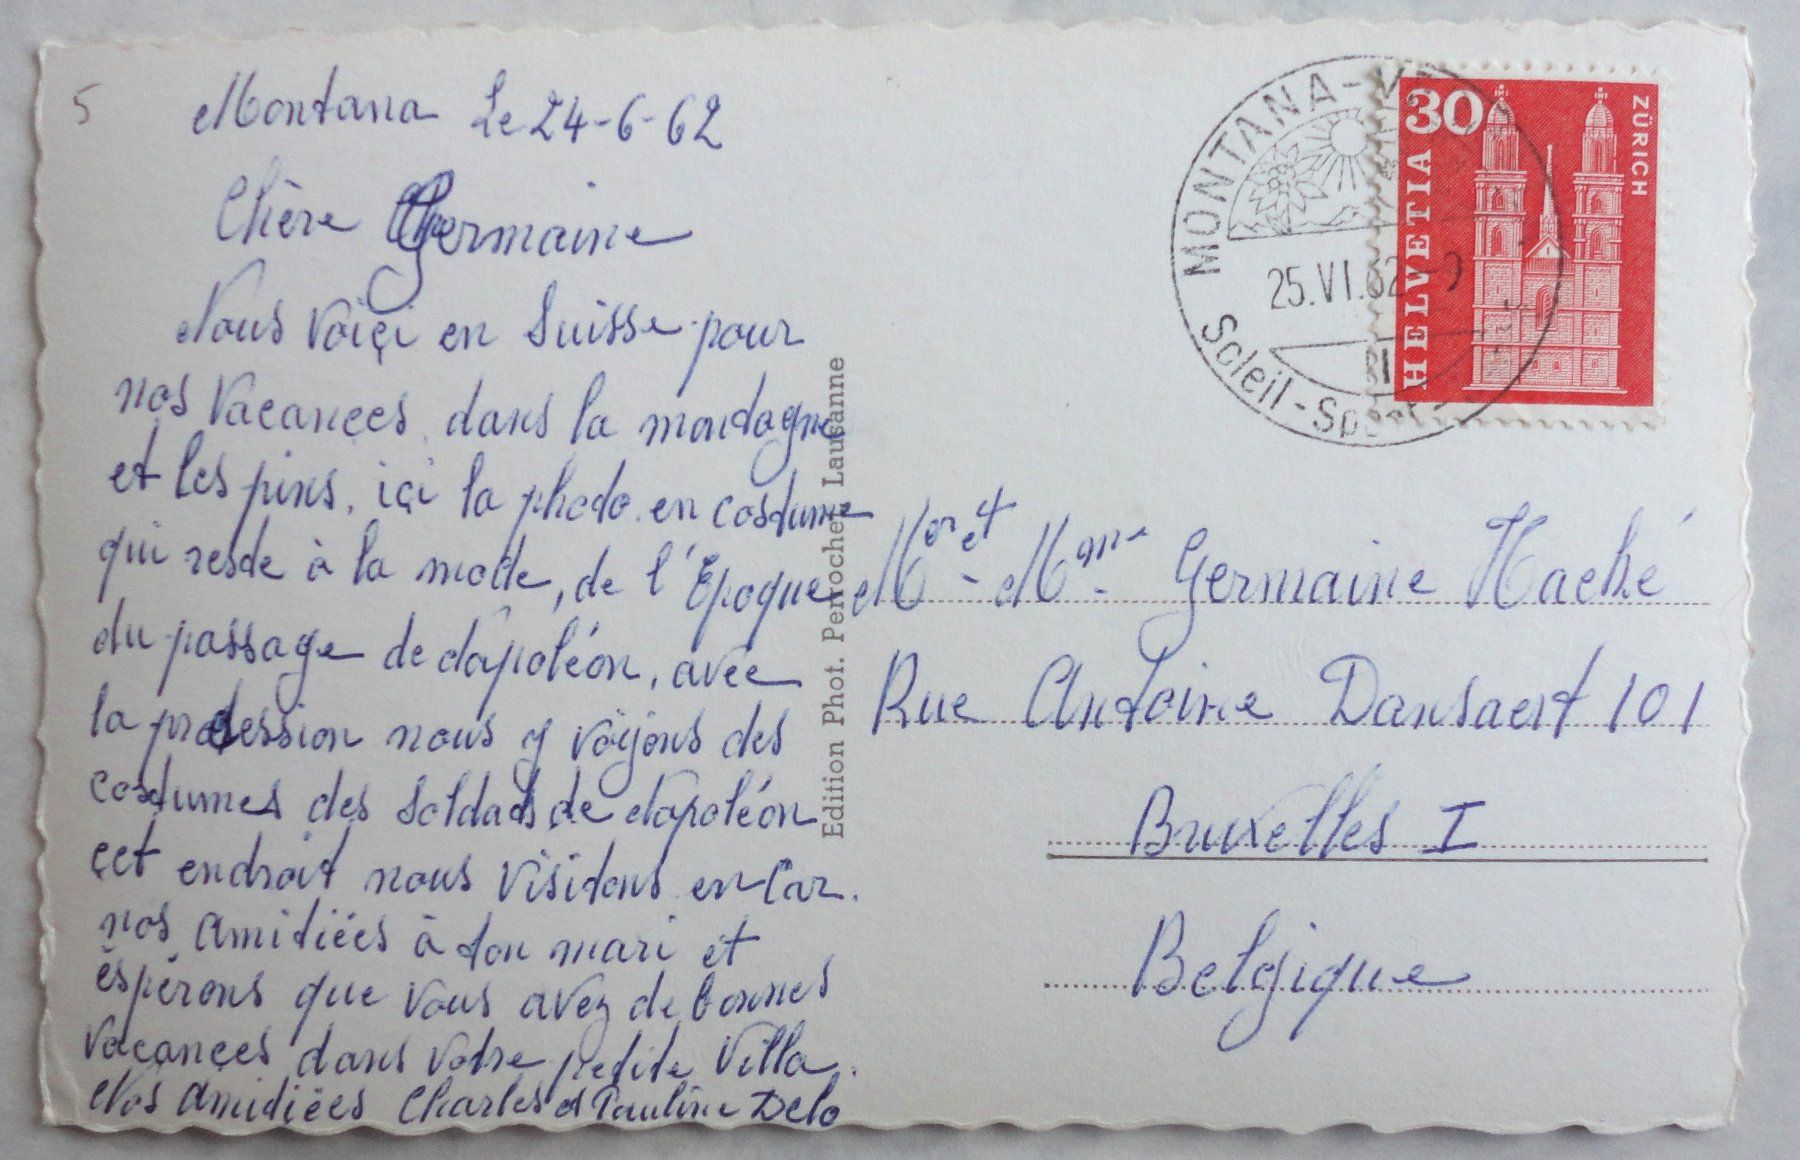 5
Montana Le 24-6-62
Chère Germaine
Nous Voiçi en Suisse pour
nos Vacançes dans la montagne
et les pins, içi la photo en costume
qui reste à la mode, de l'Epoque
du passage de Napoléon, avec
la prosession nous y voÿons des
costumes des soldats de Napoléon
çet endroit nous visitons en Car.
nos amitiées à ton mari et
éspérons que vous avez de bonnes
vacançes dans votre petite Villa.
Nos amitiées Charles et Pauline Delo
Edition Phot. Perrochet Lausanne
MONTANA-V
25.VI.62-9
Soleil-Sport-
30
HELVETIA
ZÜRICH
Mr et Mme Germaine Haché
Rue Antoine Dansaert 101
Bruxelles I
Belgique